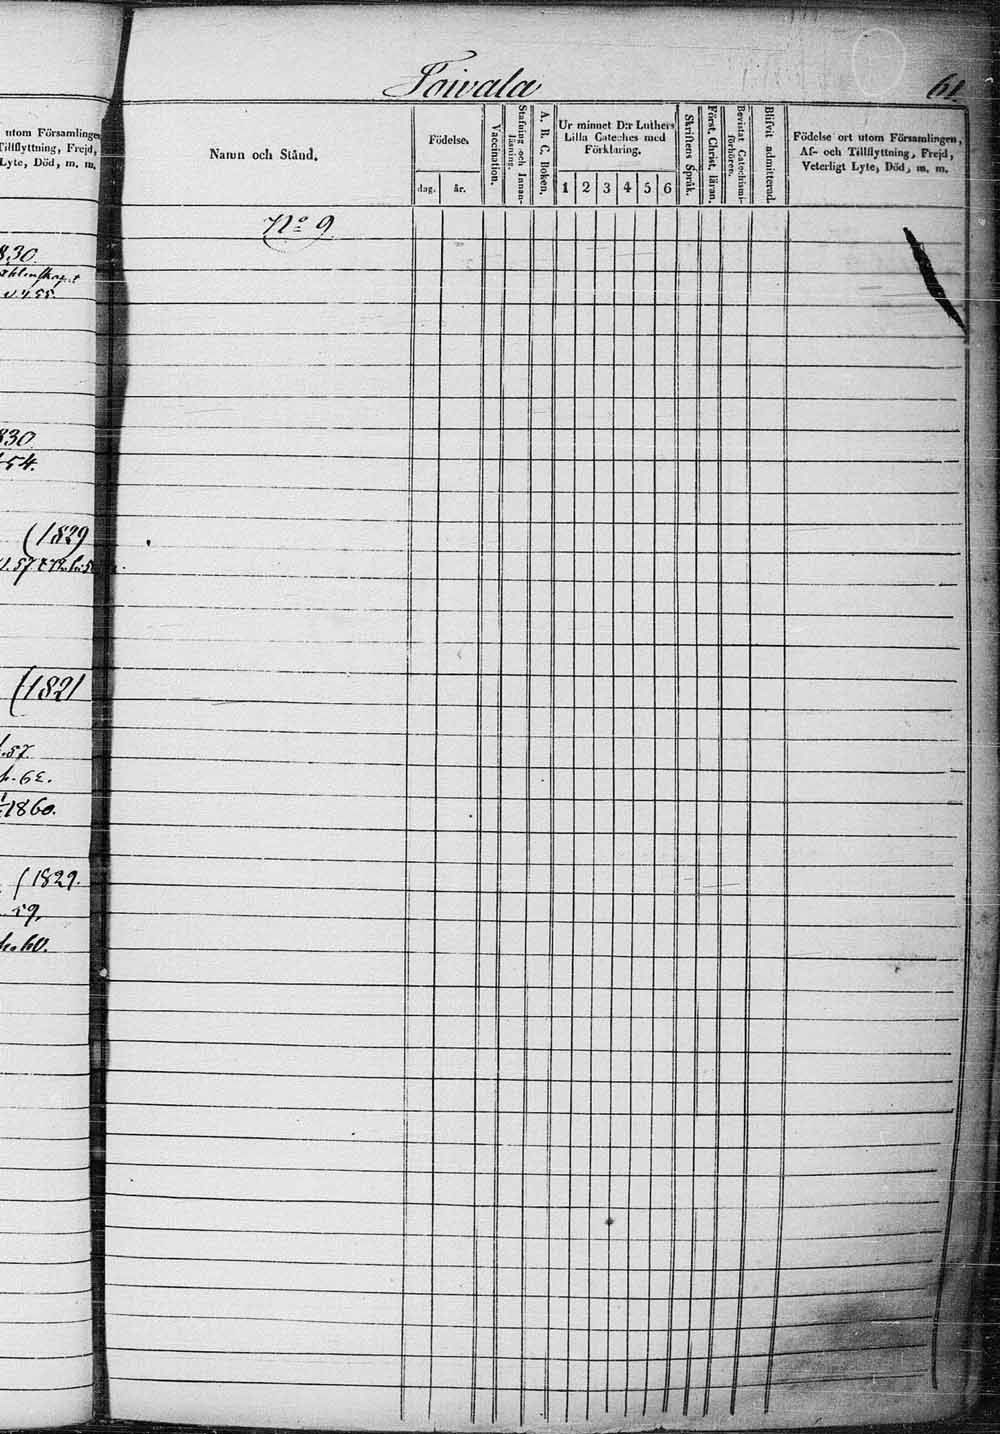 utom Församlingen
Tillflyttning, Frejd,
Lyte, Död, m. m.
830.
d. 4. 55.
830
54.
(1829
(1821
.57.
p. 62.
1860.
(1829.
59.
Toivala
61.
Namn och Stånd.
Födelse.
dag.
år.
Vaccination.
Stafning och Innanläsning.
A. B. C. Boken.
Ur minnet D:r Luthers
Lilla Cateches med
Förklaring.
1 2 3 4 5 6
Skriftens Språk.
Först. Christ. läran.
Bevistat Catechismi-
förhören.
Blifvit admitterad.
Födelse ort utom Församlingen,
Af- och Tillflyttning, Frejd,
Veterligt Lyte, Död, m. m.
No 9